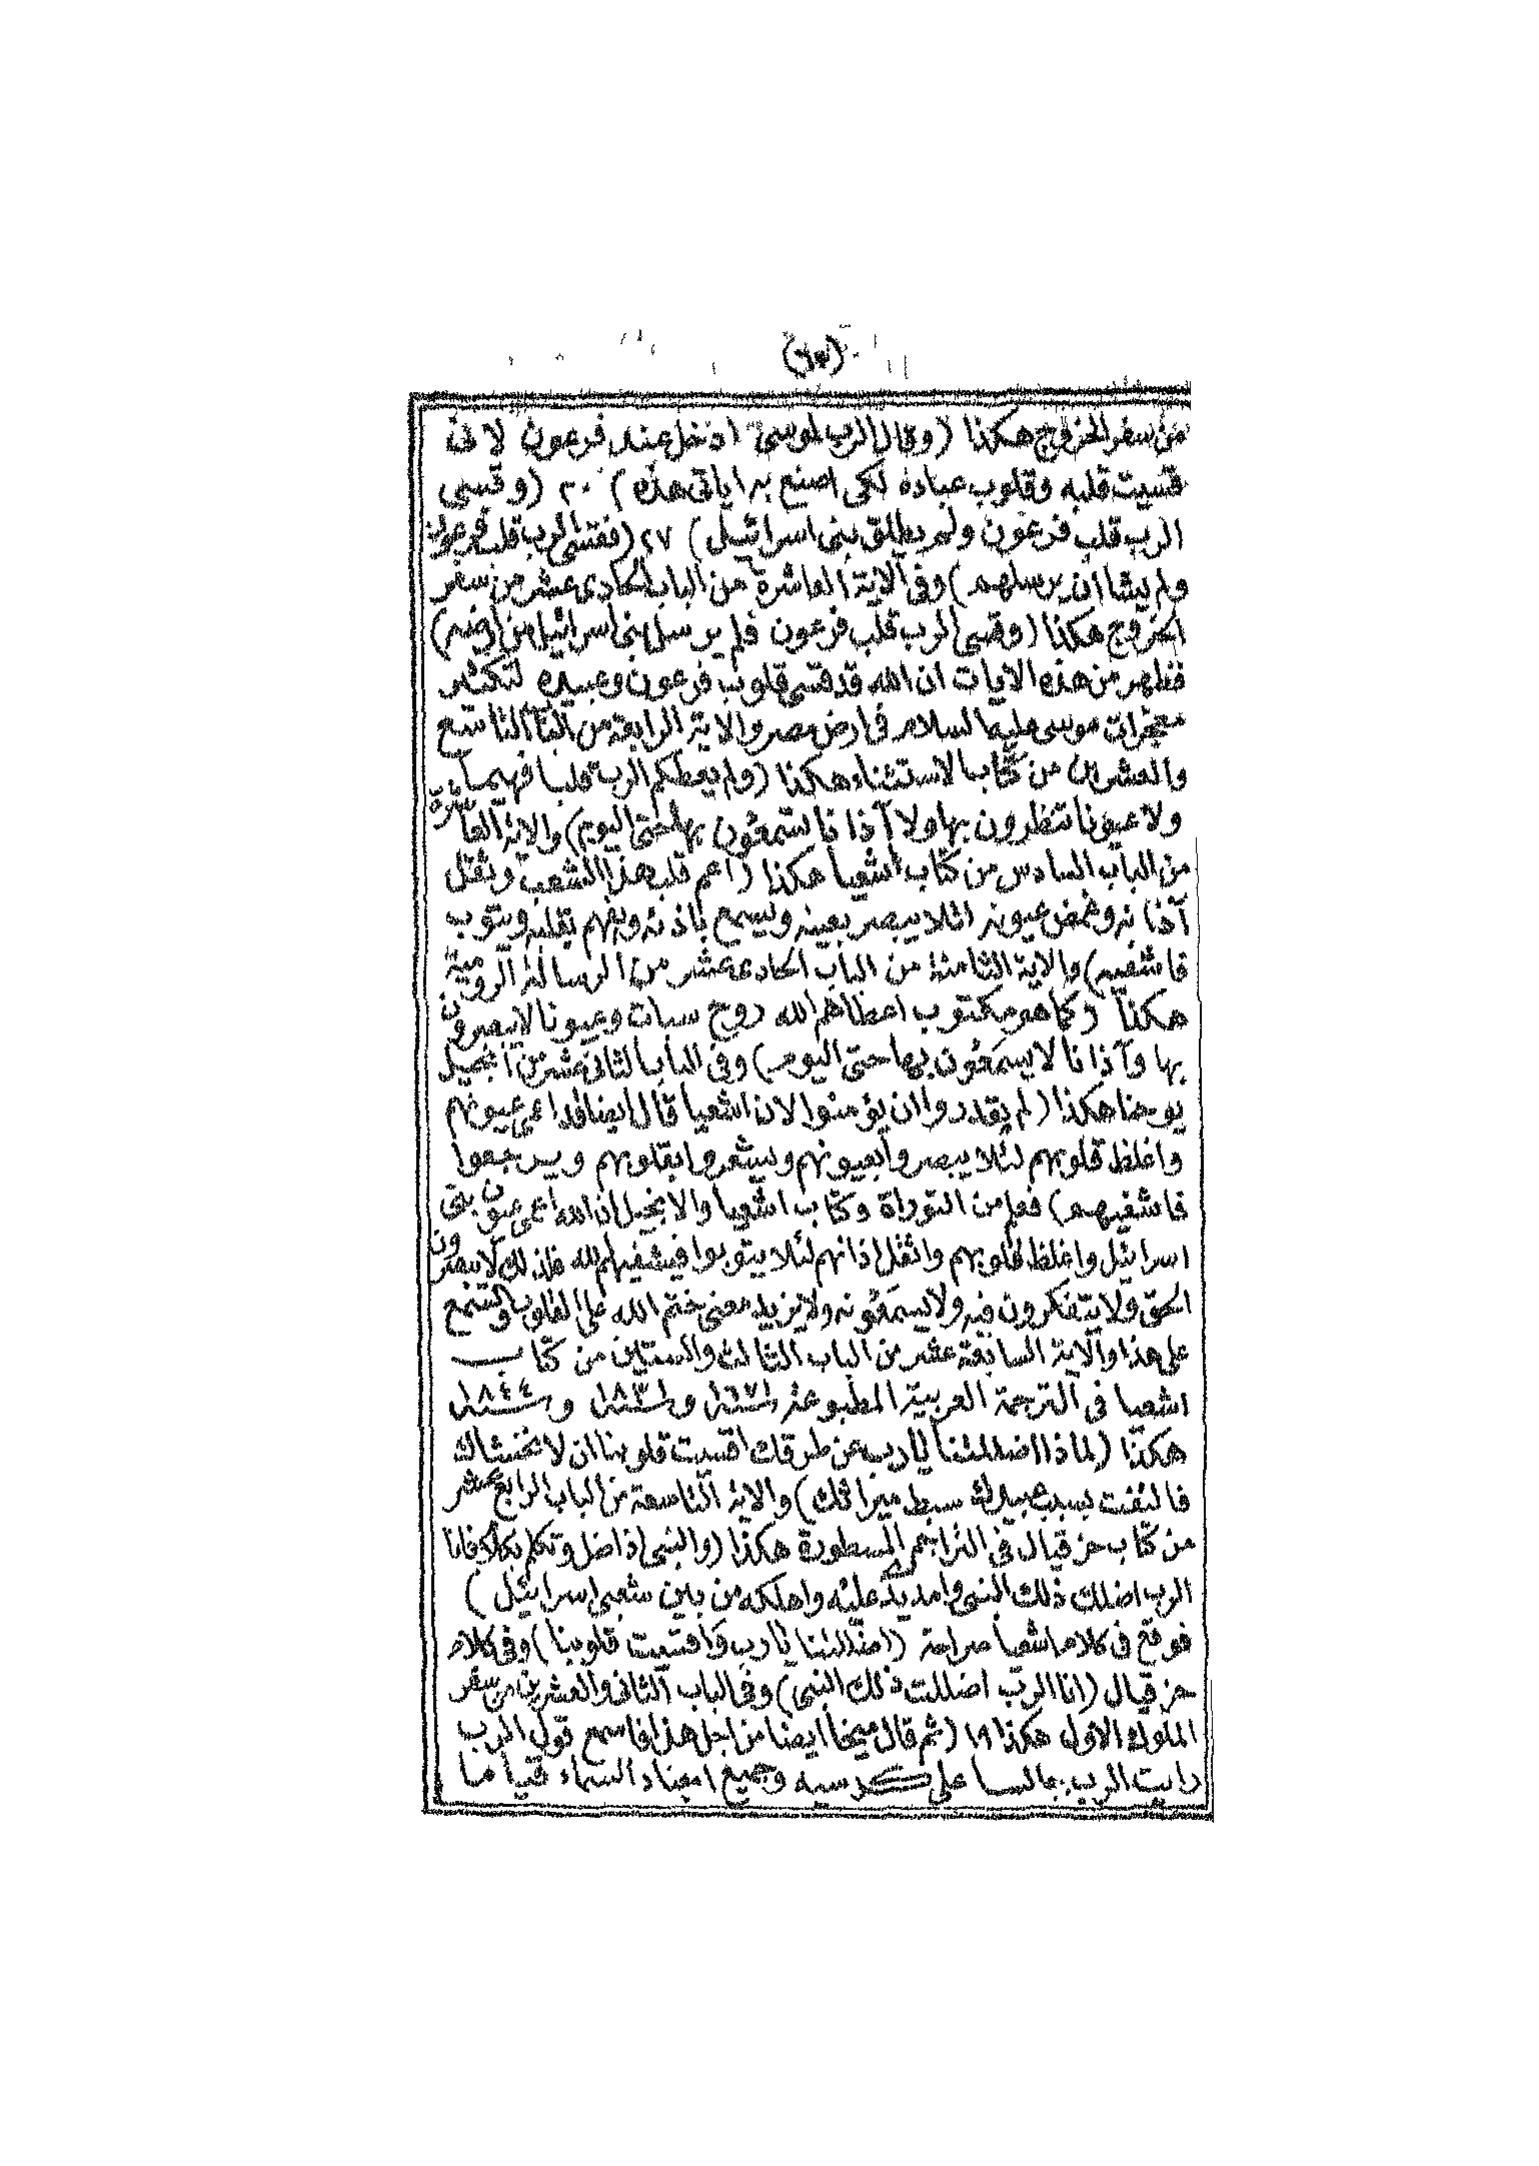 من سفر الخروج هكذا (وقال الرب لموسى ادخل عند فرعون لانى
قسيت قلبه وقلوب عباده لكى اصنع به اياتى هذه) ٢٠ (وقسى
الرب قلب فرعون ولم يطلق بنى اسرائيل) ٢٧ (فقسى الرب قلب فرعون
ولم يشا ان يرسلهم) وفى الآية العاشرة من الباب الحادى عشر من سفر
الخروج هكذا (وقسى الرب قلب فرعون فلم يرسل بنى اسرائيل من ارضه)
فظهر من هذه الايات ان الله قد قسى قلوب فرعون وعبيده لتكثير
معجزات موسى عليه السلام فى ارض مصر والاية الرابعة من الباب التاسع
والعشرين من كتاب الاستثناء هكذا (ولم يعطكم الرب قلبا فهيما
ولا عيونا تنظرون بها ولا آذانا تسمعون بها حتى اليوم) والاية العاشرة
من الباب السادس من كتاب اشعيا هكذا (اعم قلب هذا الشعب وثقل
آذانه وغمض عيونه لئلا يبصر بعينه ويسمع باذنه ويفهم بقلبه ويتوب
فاشفيه) والاية الثامنة من الباب الحادى عشر من الرسالة الرومية
هكذا (كما هو مكتوب اعطاهم الله روح سبات وعيونا لا يبصرون
بها وآذانا لا يسمعون بها حتى اليوم) وفى الباب الثانى عشر من انجيل
يوحنا هكذا (لم يقدروا ان يؤمنوا لان اشعيا قال ايضا قد اعمى عيونهم
واغلظ قلوبهم لئلا يبصروا بعيونهم ويشعروا بقلوبهم ويرجعوا
فاشفيهم) فعلم من التوراة وكتاب اشعيا والانجيل ان الله اعمى عيون بنى
اسرائيل واغلظ قلوبهم واثقل اذانهم لئلا يتوبوا فيشفيهم الله فلذلك لا يبصرون
الحق ولا يتفكرون فيه ولا يسمعونه ولا يزيد معنى ختم الله على القلوب والسمع
على هذا والآية السابعة عشر من الباب الثالث والستين من كتاب
اشعيا فى الترجمة العربية المطبوعة سنة ١٦٧١ وسنة ١٨٣١ وسنة ١٨٤٤
هكذا (لماذا اضللتنا يا رب عن طرقك اقسيت قلوبنا ان لا نخشاك
فالتفت بسبب عبيدك سبط ميراثك) والاية التاسعة من الباب الرابع عشر
من كتاب حزقيال فى التراجم المسطورة هكذا (والنبى اذا ضل وتكلم بكلام فانا
الرب اضللت ذلك النبى وامد يدى عليه واهلكه من بين شعبى اسرائيل)
فوقع فى كلام اشعيا صراحة (اضللتنا يا رب واقسيت قلوبنا) وفى كلام
حزقيال (انا الرب اضللت ذلك النبى) وفى الباب الثانى والعشرين من سفر
الملوك الاول هكذا ١٩ (ثم قال ميخا ايضا من اجل هذا فاسمع قول الرب
رايت الرب جالسا على كرسيه وجميع اجناد السماء قياما